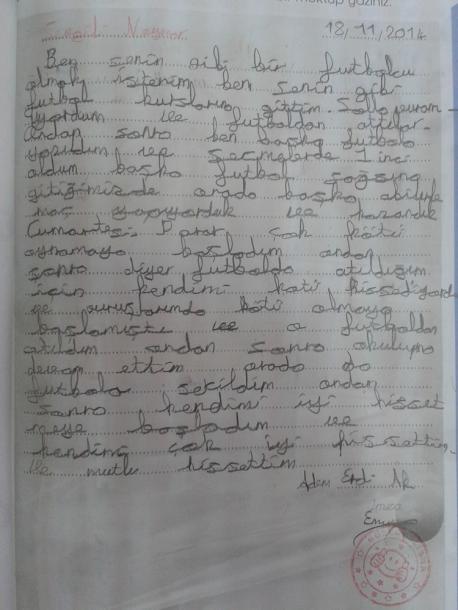 18/11/2014
Ben senin gibi bir futbolcu
olmak isterim ben senin gibi
futbol kurslarına gittim.
ve futboldan
sonra ben başka futbola
yapıdım ve seçmelerde 1 inci
oldum başka futbol
gitiğimizde orada başka
maç yapıyorduk ve kazandık
Cumartesi Pazar çok kötü
oynamaya başladım ondan
sonra diyer futbolda atıldığım
için kendimi kötü hissediyord
ve vuruşlarımda kötü olmaya
başlamıştı ve o futboldan
atıldım ondan sonra okuluma
devam ettim orada da
futbola seçildim ondan
sonra kendimi iyi hisset
meye başladım ve
kendimi çok iyi hissettim.
ve mutlu hissettim
İmza